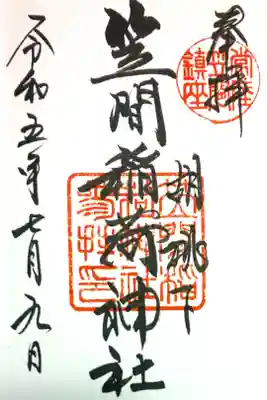 奉拝
常陸
笠間
鎮座
胡桃下
笠間稲荷神社
令和五年七月九日